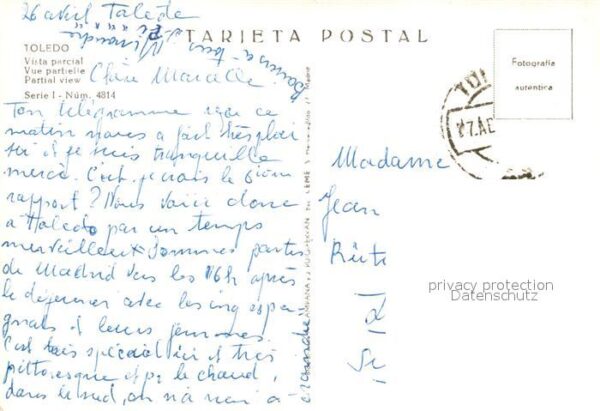 26 avril Toledo
TARJETA POSTAL
TOLEDO
Vista parcial
Vue partielle
Partial view
Serie I - Núm. 4814
Fotografia
autentica
Chère Marcelle
Ton télégramme reçu ce
matin nous a fait très plai
sir et je suis tranquille
merci. C'est, je crois le 6ième
rapport? Nous voici donc
à Toledo par un temps
merveilleux sommes partis
de Madrid vers les 16h après
le déjeuner avec les ing espa
gnols et leurs femmes.
C'est très spécial ici et très
pittoresque
dans le sud, on n'a rien à
Madame
Jean
privacy protection
Datenschutz